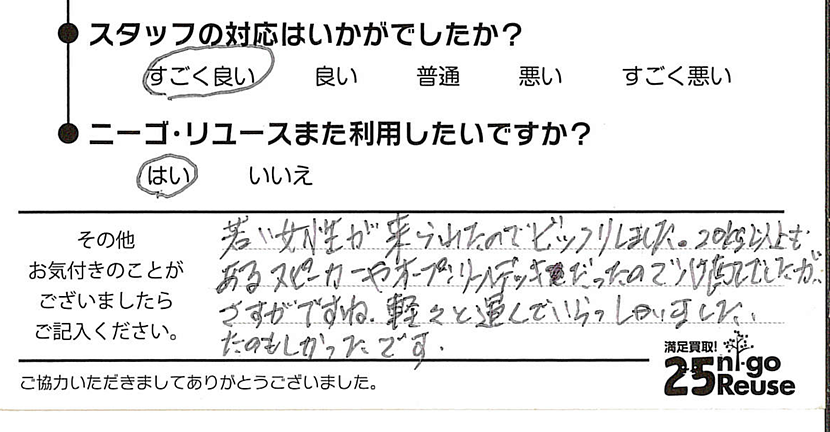 スタッフの対応はいかがでしたか?
すごく良い 良い 普通 悪い すごく悪い
ニーゴ・リユースまた利用したいですか?
はい いいえ
その他
お気付きのことが
ございましたら
ご記入ください。
若い女性が来られたのでビックリしました。20kg以上も
あるスピーカーやオープンリールデッキだったので心配でしたが、
さすがですね、軽々と運んでいらっしゃいました、
たのもしかったです.
ご協力いただきましてありがとうございました。
満足買取!
25 ni-go
Reuse